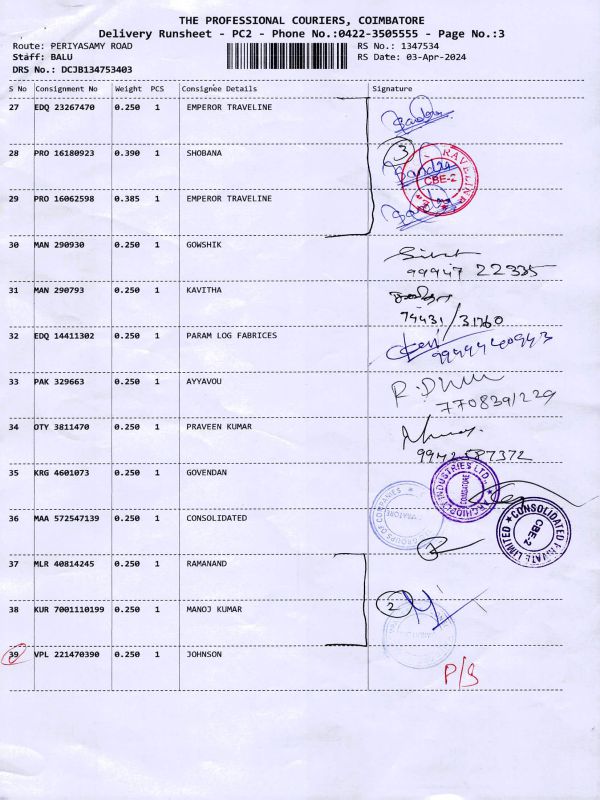 THE PROFESSIONAL COURIERS, COIMBATORE
Delivery Runsheet - PC2 - Phone No.:0422-3505555 - Page No.:3
Route: PERIYASAMY ROAD RS No.: 1347534
Staff: BALU RS Date: 03-Apr-2024
DRS No.: DCJB134753403
S No Consignment No Weight PCS Consignee Details Signature
27 EDQ 23267470 0.250 1 EMPEROR TRAVELINE
28 PRO 16180923 0.390 1 SHOBANA
3
CBE-2
29 PRO 16062598 0.385 1 EMPEROR TRAVELINE
30 MAN 290930 0.250 1 GOWSHIK
99947 22335
31 MAN 290793 0.250 1 KAVITHA
74431/31760
32 EDQ 14411302 0.250 1 PARAM LOG FABRICES
33 PAK 329663 0.250 1 AYYAVOU
7708391229
34 OTY 3811470 0.250 1 PRAVEEN KUMAR
9942587372
35 KRG 4601073 0.250 1 GOVENDAN
INDUSTRIES LTD.
COIMBATORE
GROUPS OF COMPANIES
36 MAA 572547139 0.250 1 CONSOLIDATED
CONSOLIDATED
PRIVATE LIMITED
CBE-2
37 MLR 40814245 0.250 1 RAMANAND
38 KUR 7001110199 0.250 1 MANOJ KUMAR
2
39 VPL 221470390 0.250 1 JOHNSON
P/S